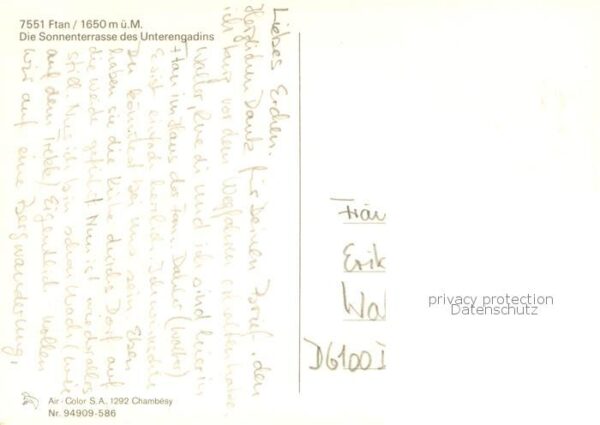 7551 Ftan / 1650 m ü. M.
Die Sonnenterrasse des Unterengadins
Liebes Erchen.
Herzlichen Dank für Deinen Brief, den
ich kurz vor dem Wegfahren erhalten habe.
Walter, Ruedi und ich sind hier in
Ftan im Haus der Fam. Dahler (Walter)
Es ist einfach herrlich. Ich wünschte
Du könntest bei uns sein. Eben
haben sie die Kühe durchs Dorf auf
die Weide geführt. Nun ist wieder alles
still. Nur ich bin schon wach (wie
auf dem Trekk) Eigentlich wollen
wir auf eine Bergwanderung,
Frau
Erik
Wal
D6100
privacy protection
Datenschutz
Air - Color S.A. 1292 Chambésy
Nr. 94909-586